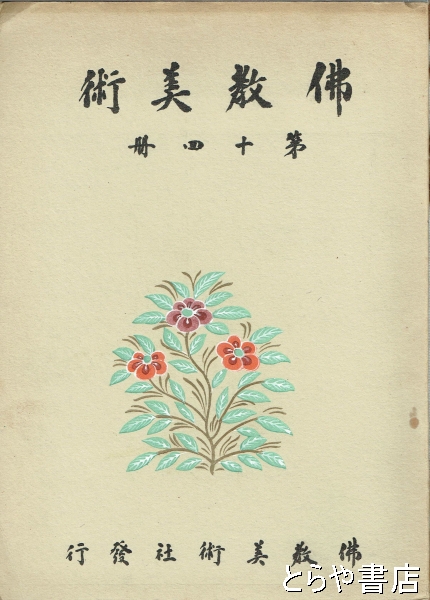 佛教美術
第十四册
佛教美術社發行
とらや書店